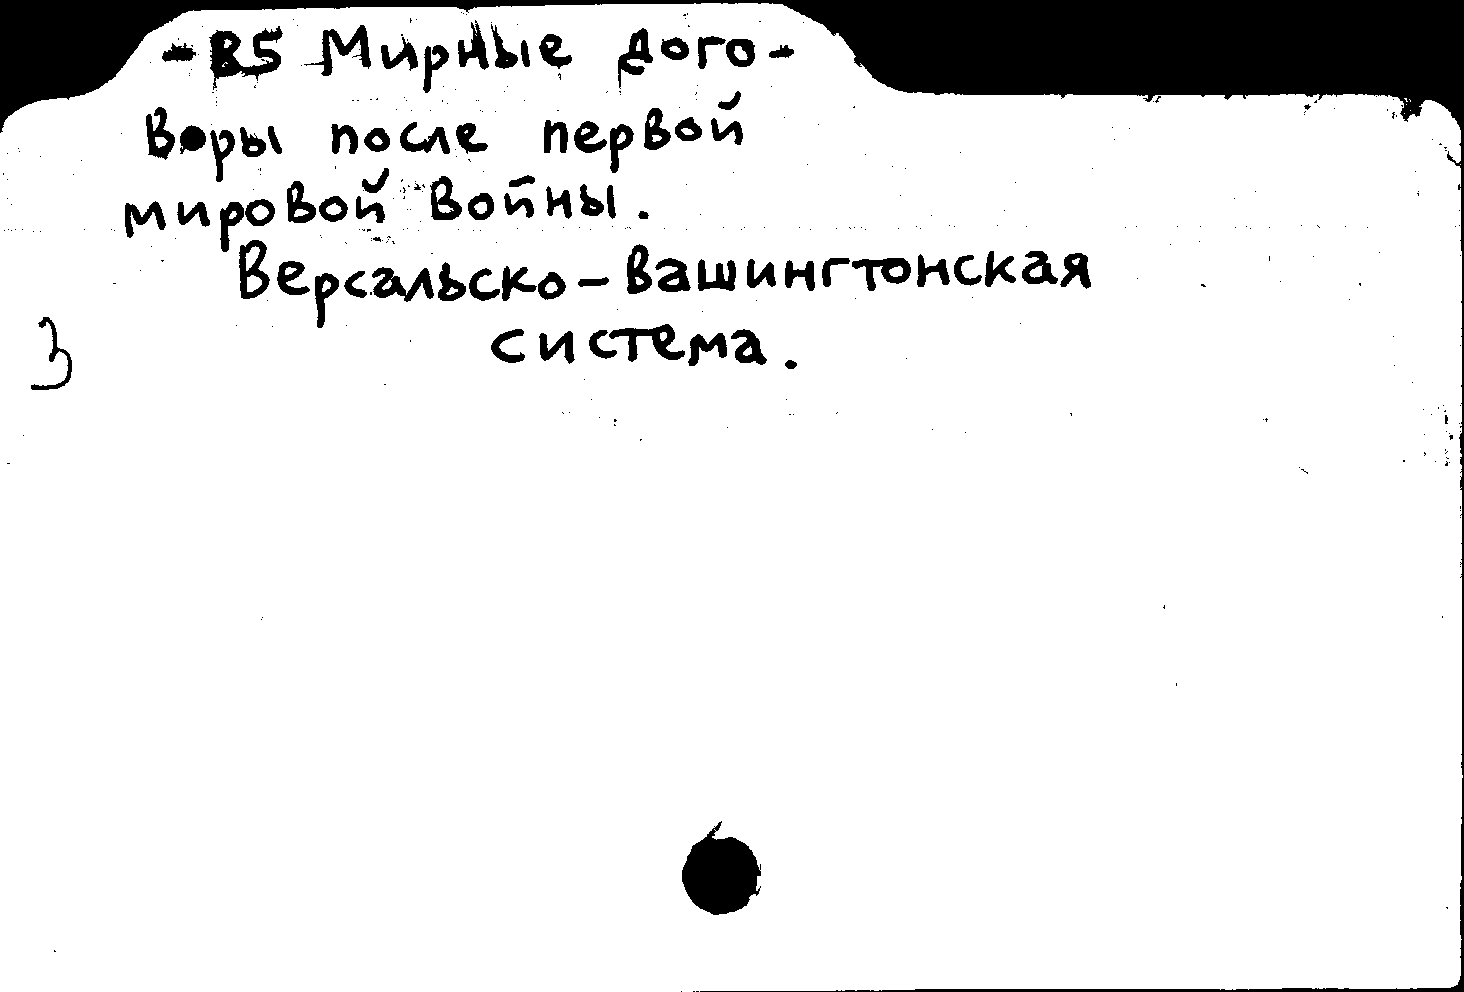 -В5 Мирные дого-
воры после первой
мировой войны.
Версальско-Вашингтонская
система.
3